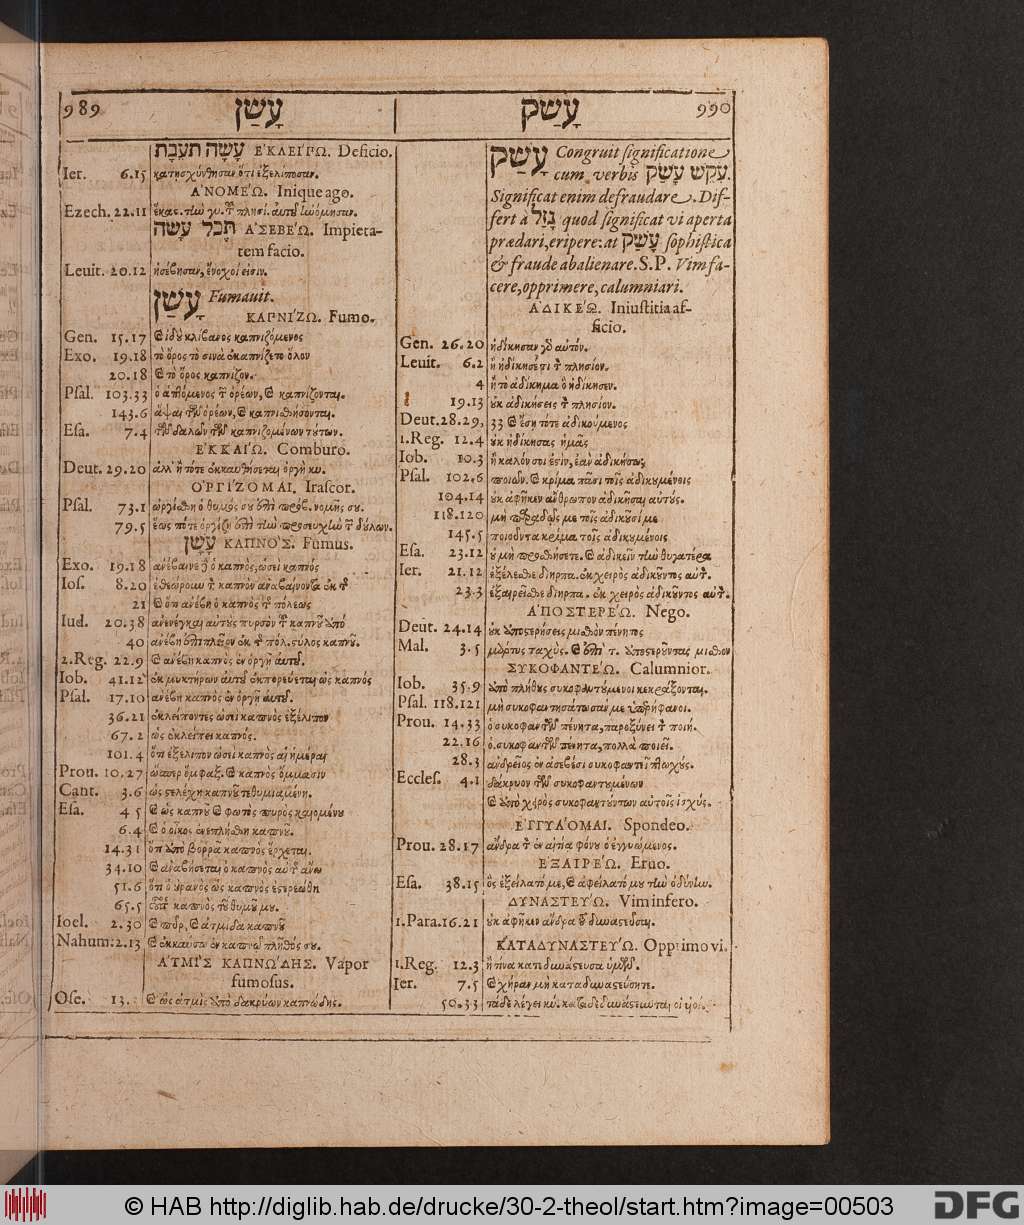 989 עָשַׁן
עָשָׂה תּוֹעֵבָת ἘΚΛΕΊΠΩ. Deficio.
Ier. 6.15 κατῃσχύνθησαν ὅτι ἐξελίποσαν.
ἈΝΟΜΈΩ. Inique ago.
Ezech. 22.11
תֶּבֶל עָשָׂה ἈΣΕΒΈΩ. Impieta-
tem facio.
Leuit. 20.12 ἠσέβησαν, ἔνοχοί εἰσιν.
עָשַׁן Fumauit.
ΚΑΠΝΊΖΩ. Fumo.
Gen. 15.17 ϗ ἰδοὺ κλίβανος καπνιζόμενος
Exo. 19.18 τὸ ὄρος τὸ σινὰ ἐκαπνίζετο ὅλον
20.18 ϗ τὸ ὄρος καπνίζον.
Psal. 103.33 ὁ ἁπτόμενος τῶν ὀρέων, ϗ καπνίζονται.
143.6 ἅψαι τῶν ὀρέων, ϗ καπνισθήσονται.
Esa. 7.4 τῶν δαλῶν τῶν καπνιζομένων τούτων.
ἘΚΚΑΊΩ. Comburo.
Deut. 29.20 ἀλλ' ἢ τότε ἐκκαυθήσεται ὀργὴ κυ.
ὈΡΓΊΖΟΜΑΙ. Irascor.
Psal. 73.1 ὠργίσθη ὁ θυμός σου ἐπὶ πρόβ. νομῆς σου.
79.5 ἕως πότε ὀργίζῃ ἐπὶ τὴν προσευχὴν τῶν δούλων.
עָשָׁן ΚΑΠΝΌΣ. Fumus.
Exo. 19.18 ἀνέβαινε ὁ καπνὸς, ὡσεὶ καπνὸς
Ios. 8.20 ἐθεώρουν τὸν καπνὸν ἀναβαίνοντα ἐκ τῆς
21 ϗ ὅτι ἀνέβη ὁ καπνὸς τῆς πόλεως
Iud. 20.38 ἀνενέγκαι αὐτοὺς πυρσὸν τοῦ καπνοῦ ἀπὸ
40 ἀνέβη ἐπὶ πλεῖον ἐκ τῆς πόλ. στύλος καπνοῦ.
2.Reg. 22.9 ϗ ἀνέβη καπνὸς ἐν ὀργῇ αὐτοῦ.
Iob. 41.12 ἐκ μυκτήρων αὐτοῦ ἐκπορεύεται ὡς καπνός
Psal. 17.10 ἀνέβη καπνὸς ἐν ὀργῇ αὐτοῦ.
36.21 ἐκλείποντες ὡσεὶ καπνὸς ἐξέλιπον
67.2 ὡς ἐκλείπει καπνός.
101.4 ὅτι ἐξέλιπον ὡσεὶ καπνὸς αἱ ἡμέραι
Prou. 10.27 ὥσπερ ὄμφαξ. ϗ καπνὸς ὄμμασιν
Cant. 3.6 ὡς στελέχη καπνοῦ τεθυμιαμένη.
Esa. 4 5 ϗ ὡς καπνοῦ ϗ φωτὸς πυρὸς καιομένου
6.4 ϗ ὁ οἶκος ἐνεπλήσθη καπνοῦ.
14.31 ὅτι ἀπὸ βορρᾶ καπνὸς ἔρχεται.
34.10 ϗ ἀναβήσεται ὁ καπνὸς αὐτῆς ἄνω
51.6 ὅτι ὁ οὐρανὸς ὡς καπνὸς ἐστερεώθη
65.5 οὗτος καπνὸς τοῦ θυμοῦ μου.
Ioel. 2.30 ϗ πῦρ, ϗ ἀτμίδα καπνοῦ
Nahum: 2.13 ϗ ἐκκαύσω ἐν καπνῷ πλῆθός σου.
ἈΤΜῚΣ ΚΑΠΝΏΔΗΣ. Vapor
fumosus.
Ose. 13. ϗ ὡς ἀτμὶς ἀπὸ δακρύων καπνώδης.
עָשַׁק 990
עָשַׁק Congruit significatione
cum verbis עִקֵּשׁ עָשַׂק.
Significat enim defraudare. Dif-
fert à גָּזַל quod significat vi aperta
prædari, eripere: at עָשַׁק sophistica
& fraude abalienare. S.P. Vim fa-
cere, opprimere, calumniari.
ἈΔΙΚΈΩ. Iniustitia af-
ficio.
Gen. 26.20 ἠδίκησαν γὸ αὐτόν.
Leuit. 6.2 ἢ ἠδίκησέ τι τὸν πλησίον.
4 ἢ τὸ ἀδίκημα ὃ ἠδίκησεν.
19.13 οὐκ ἀδικήσεις τὸν πλησίον.
Deut. 28.29, 33 ϗ ἔσῃ τότε ἀδικούμενος
1.Reg. 12.4 οὐκ ἠδίκησας ἡμᾶς
Iob. 10.3 ἢ καλόν σοι ἐστὶν, ἐὰν ἀδικήσω;
Psal. 102.6 ποιῶν. ϗ κρίμα πᾶσι τοῖς ἀδικουμένοις
104.14 οὐκ ἀφῆκεν ἄνθρωπον ἀδικῆσαι αὐτούς.
118.120 μὴ παραδῷς με τοῖς ἀδικοῦσί με
145.5 ποιοῦντα κρίμα τοῖς ἀδικουμένοις
Esa. 23.12 οὐ μὴ προσθήσετε. ϗ ἀδικεῖν τὴν θυγατέρα
Ier. 21.12 ἐξέλεσθε διηρπα. ἐκ χειρὸς ἀδικοῦντος αὐτ.
23.3 ἐξαιρεῖσθε διηρπα. ἐκ χειρὸς ἀδικοῦντος αὐτ.
ἈΠΟΣΤΕΡΈΩ. Nego.
Deut. 24.14 οὐκ ἀποστερήσεις μισθὸν πένητος
Mal. 3.5 μάρτυς ταχύς. ϗ ἐπὶ τ. ἀποστεροῦντας μισθὸν
ΣΥΚΟΦΑΝΤΈΩ. Calumnior.
Iob. 35.9 ἀπὸ πλήθους συκοφαντούμενοι κεκράξονται.
Psal. 118.121 μὴ συκοφαντησάτωσάν με ὑπερήφανοι.
Prou. 14.33 ὁ συκοφαντῶν πένητα, παροξύνει τὸν ποιή.
22.16 ὁ συκοφαντῶν πένητα, πολλὰ ποιεῖ.
28.3 ἀνδρεῖος ἐν ἀσεβέσι συκοφαντεῖ πτωχούς.
Eccles. 4.1 δάκρυον τῶν συκοφαντουμένων
ϗ ἀπὸ χειρὸς συκοφαντούντων αὐτοῖς ἰσχύς.
ἘΓΓΥΆΟΜΑΙ. Spondeo.
Prou. 28.17 ἄνδρα τὸν ἐν αἰτίᾳ φόνου ὁ ἐγγυώμενος.
ἘΞΑΙΡΈΩ. Eruo.
Esa. 38.15 ὃς ἐξείλατό με, ϗ ἀφείλατό μου τὴν ὀδύνην.
ΔΥΝΑΣΤΕΎΩ. Vim infero.
1.Para. 16.21 οὐκ ἀφῆκεν ἄνδρα τοῦ δυναστεῦσαι.
ΚΑΤΑΔΥΝΑΣΤΕΎΩ. Opprimo vi.
1.Reg. 12.3 ἢ τίνα κατεδυνάστευσα ὑμῶν.
Ier. 7.5 ϗ χήραν μὴ καταδυναστεύσητε.
50.33 τάδε λέγει κύ. καταδεδυνάστευνται οἱ υἱοί.
© HAB http://diglib.hab.de/drucke/30-2-theol/start.htm?image=00503
DFG